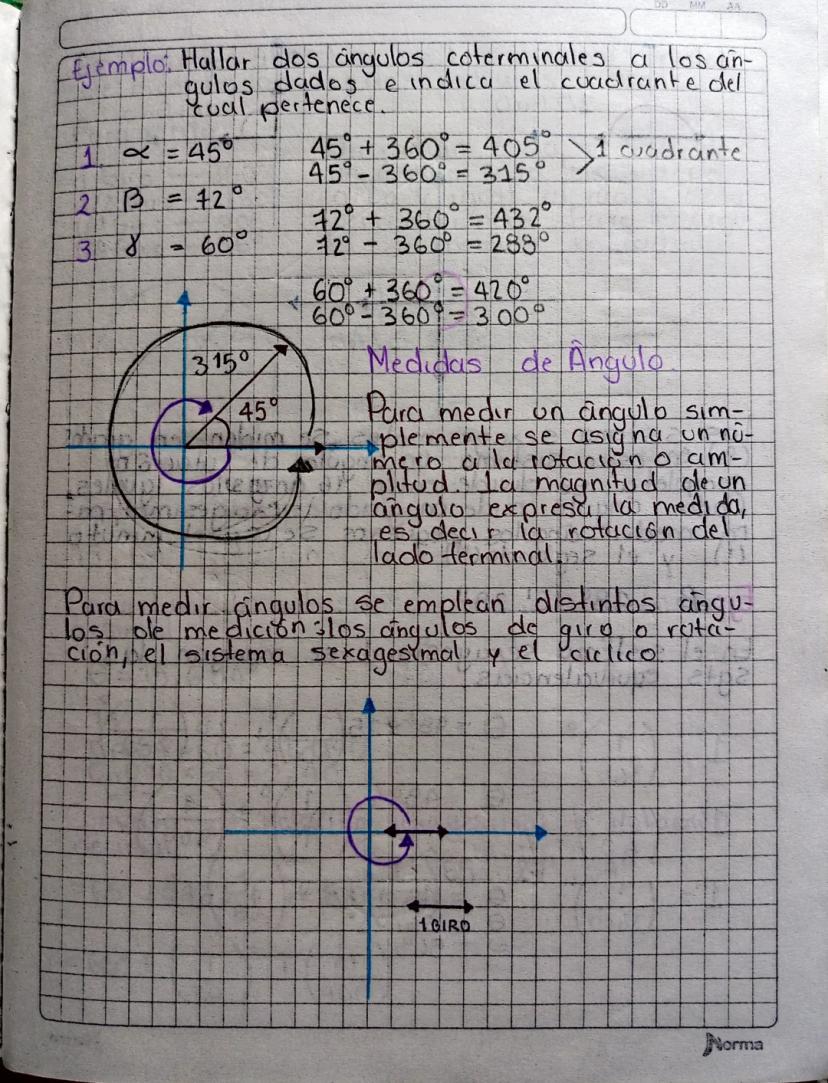 DD MM AA
Ejemplo: Hallar dos ángulos coterminales a los án-
gulos dados e indica el cuadrante del
cual pertenece.
1 α = 45° 45° + 360° = 405° > 1 cuadrante
45° - 360° = 315°
2 β = 72°
72° + 360° = 432°
3 γ = 60° 72° - 360° = 288°
60° + 360° = 420°
60° - 360° = 300°
315°
45°
Medidas de Ángulo.
Para medir un ángulo sim-
plemente se asigna un nú-
mero a la rotación o am-
plitud. La magnitud de un
ángulo expresa la medida,
es decir la rotación del
lado terminal.
Para medir ángulos se emplean distintos ángu-
los de medición: los ángulos de giro o rota-
ción, el sistema sexagesimal y el cíclico.
1 GIRO
Norma